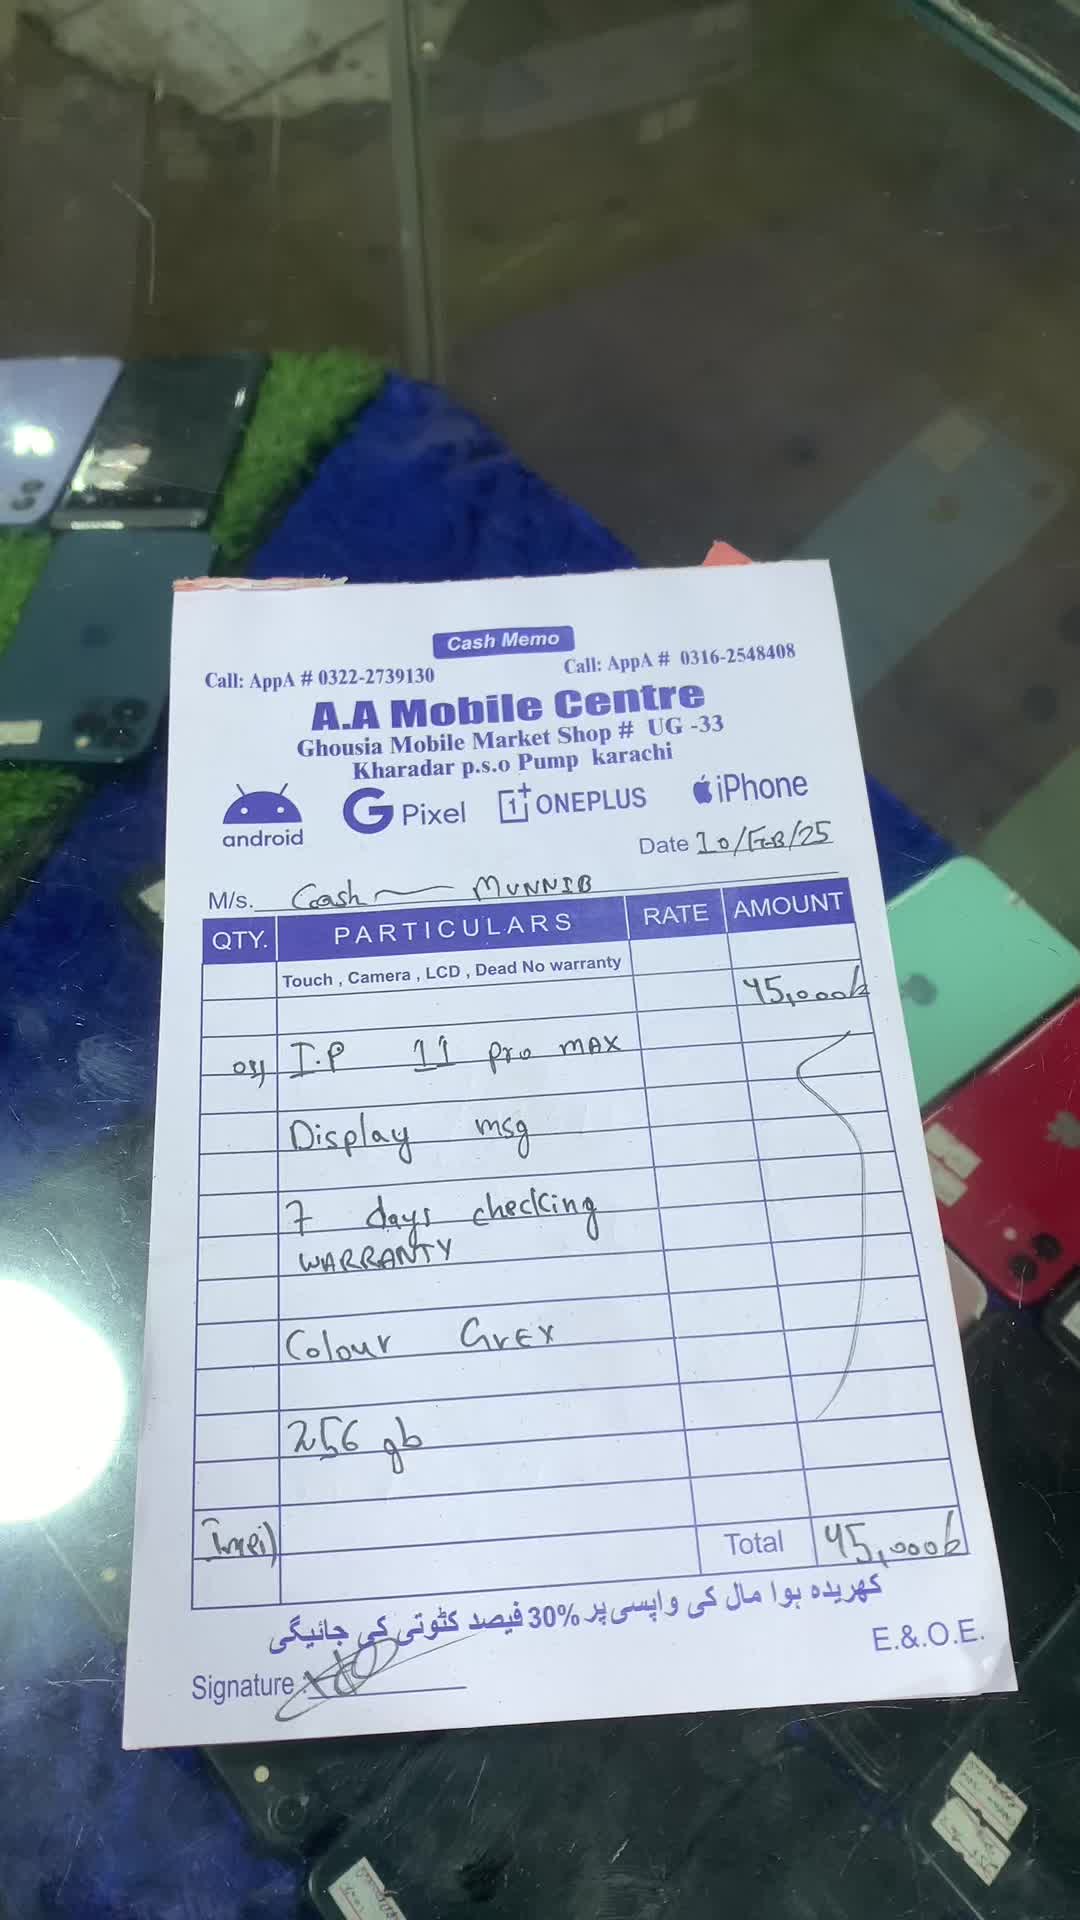 Cash Memo
Call: AppA # 0322-2739130 Call: AppA # 0316-2548408
A.A Mobile Centre
Ghousia Mobile Market Shop # UG -33
Kharadar p.s.o Pump karachi
android Pixel ONEPLUS iPhone
Date 10/FEB/25
M/s. Cash MUNNIB
QTY. PARTICULARS RATE AMOUNT
Touch , Camera , LCD , Dead No warranty
45,000/=
I.P 11 pro MAX
Display msg
7 days checking
WARRANTY
Colour Grey
256 gb
Imei)
Total 45,000/=
کھریدہ ہوا مال کی واپسی پر 30% فیصد کٹوتی کی جائیگی
E.&.O.E.
Signature :